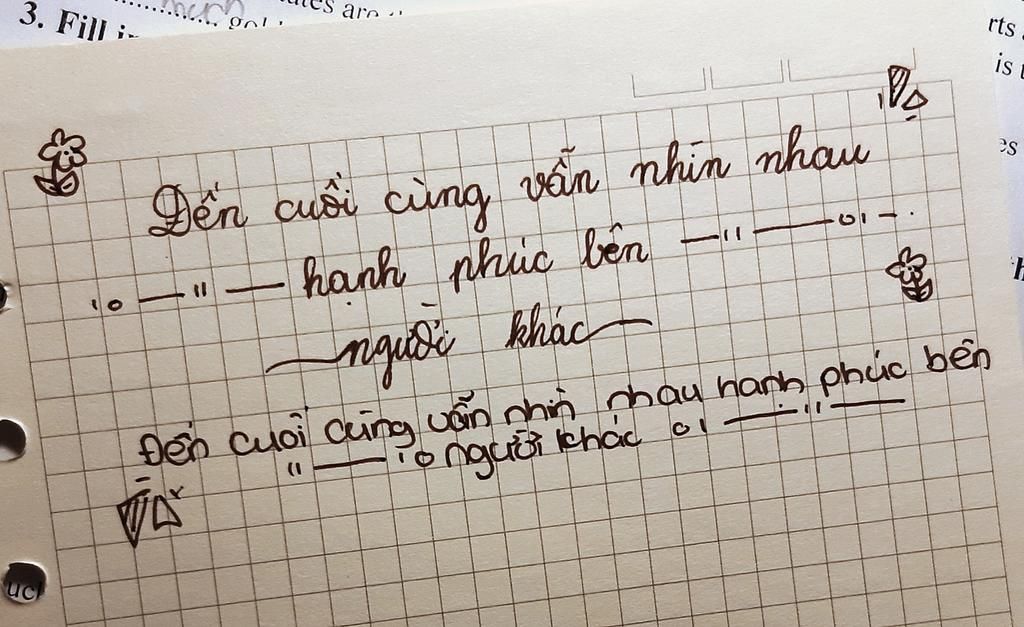 3. Fill in
much
gol
ates are
rts
is t
es
Đến cuối cùng vẫn nhìn nhau
hạnh phúc bên
người khác
Đến cuối cùng vẫn nhìn nhau hạnh phúc bên
người khác
uch